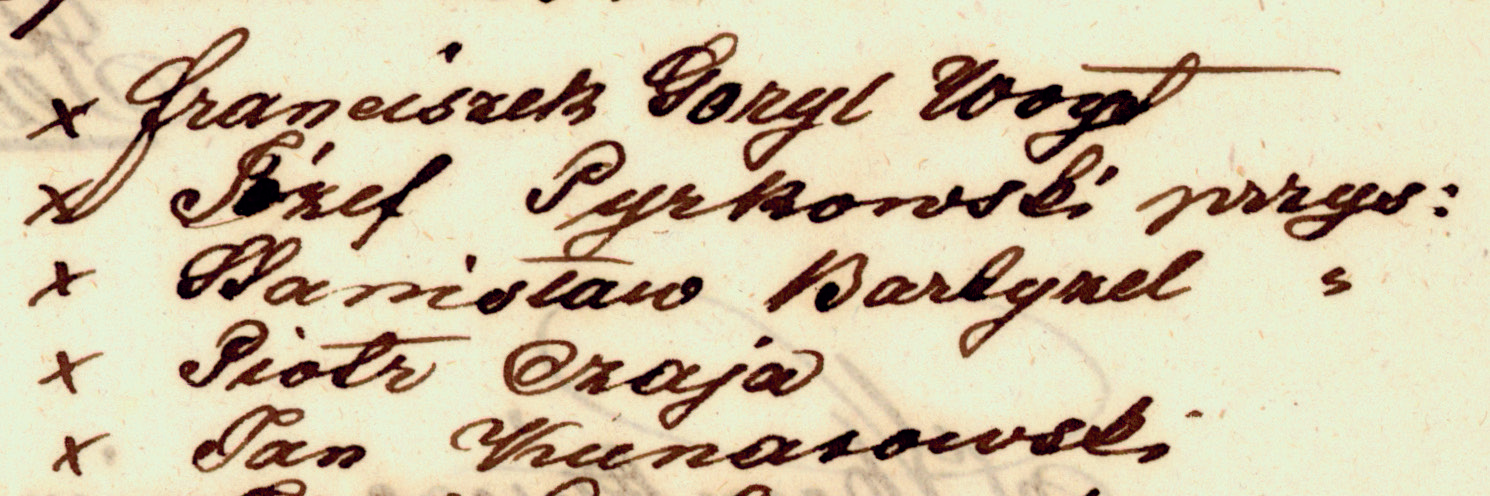 x Franciszek Goryl Wogt
x Józef Pyrkowski przys:
x Stanisław Bartyzel "
x Piotr Czaja
x Jan Kunasowski